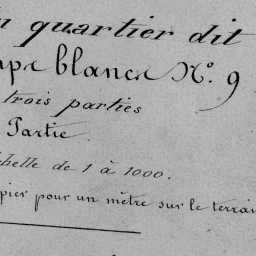 quartier dit
blanche N°. 9
trois parties
Partie.
helle de 1 à 1000.
pier pour un mètre sur le terrai